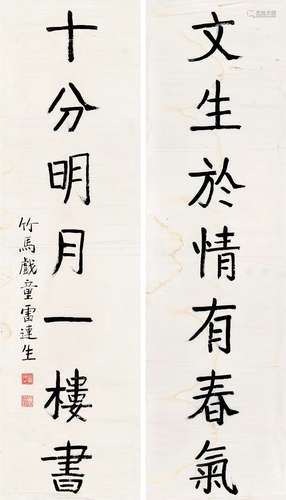 文生於情有春氣
十分明月一樓書
竹馬戲童雷達生